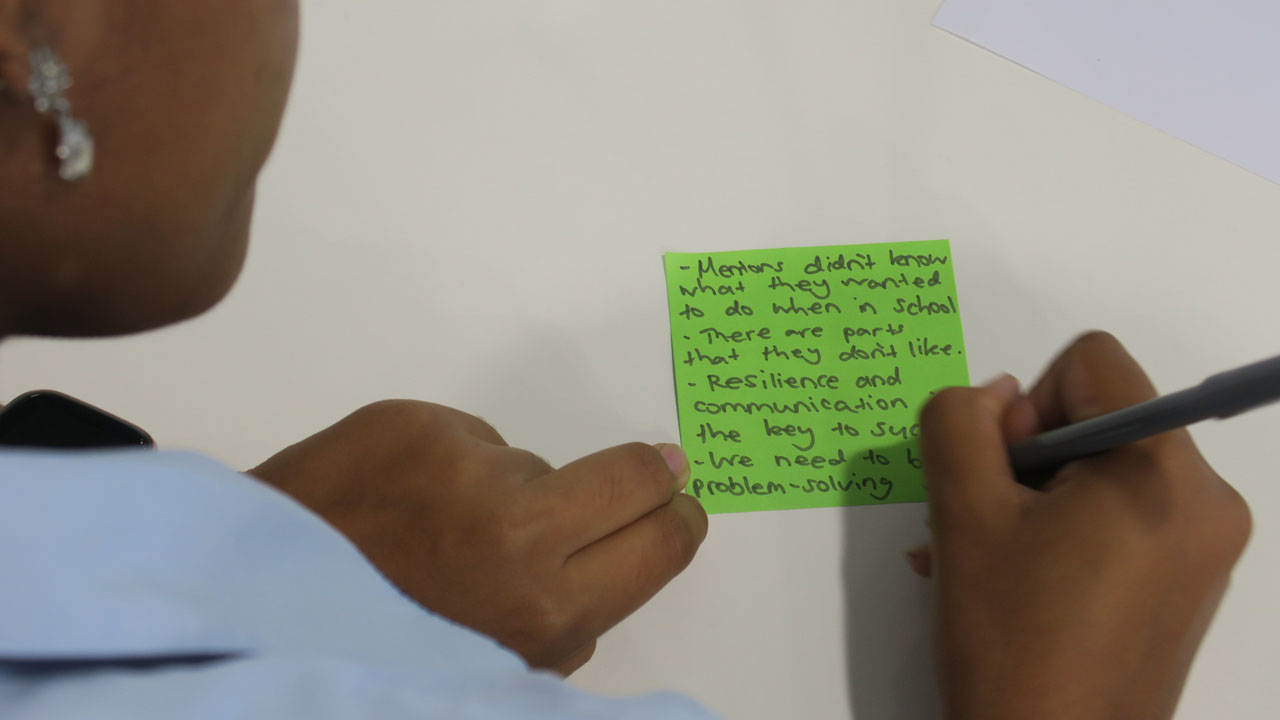 - Mentors didn't know
what they wanted
to do when in school
- There are parts
that they don't like.
- Resilience and
communication
the key to
- We need to
problem-solving